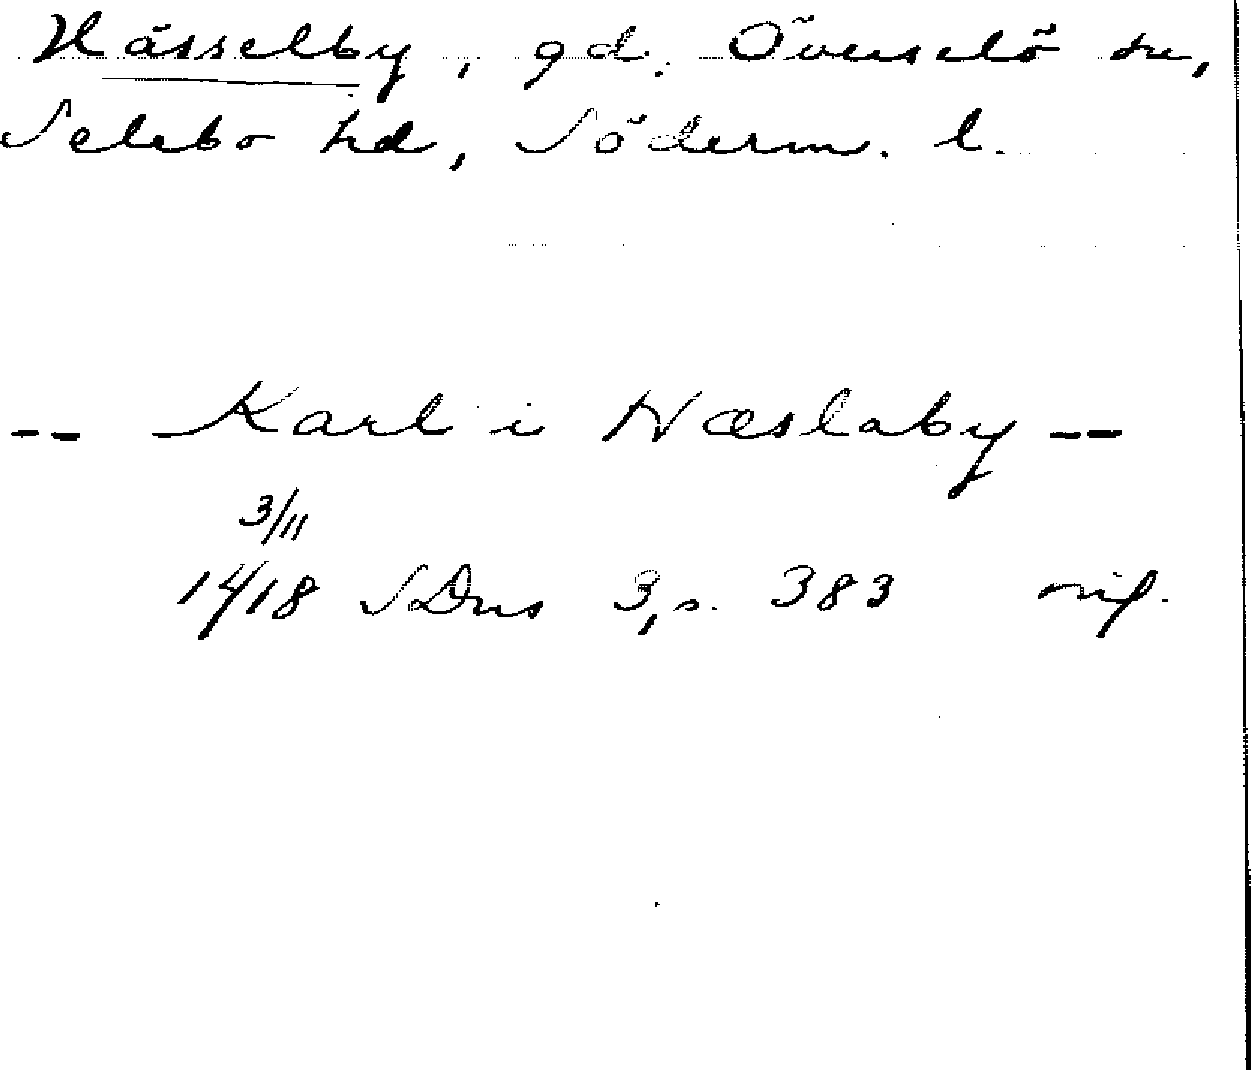 Hässelby, gd. Överselö sn,
Selebo hd, Söderm. l.
-- Karl i Hæslaby --
3/11
14/18 SDns 3, s. 383 orig.